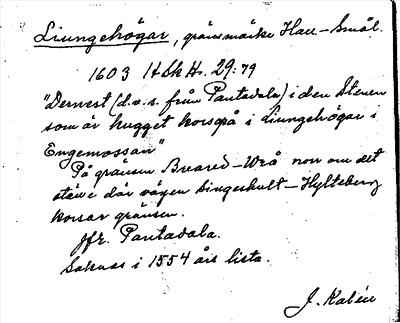 Liungehögar, gränsmärke Hall-Smål.
1603 HSkH. 29:79
"Dernest (d.v.s. från Pantadala) i den Stenen
som är hugget korspå i Liungehögar i
Engemossan"
På gränsen Breared-Wrå norr om det
ställe där vägen Singeshult-Hylteberg
korsar gränsen.
Jfr. Pantadala.
Saknas i 1554 års lista.
J. Kalén